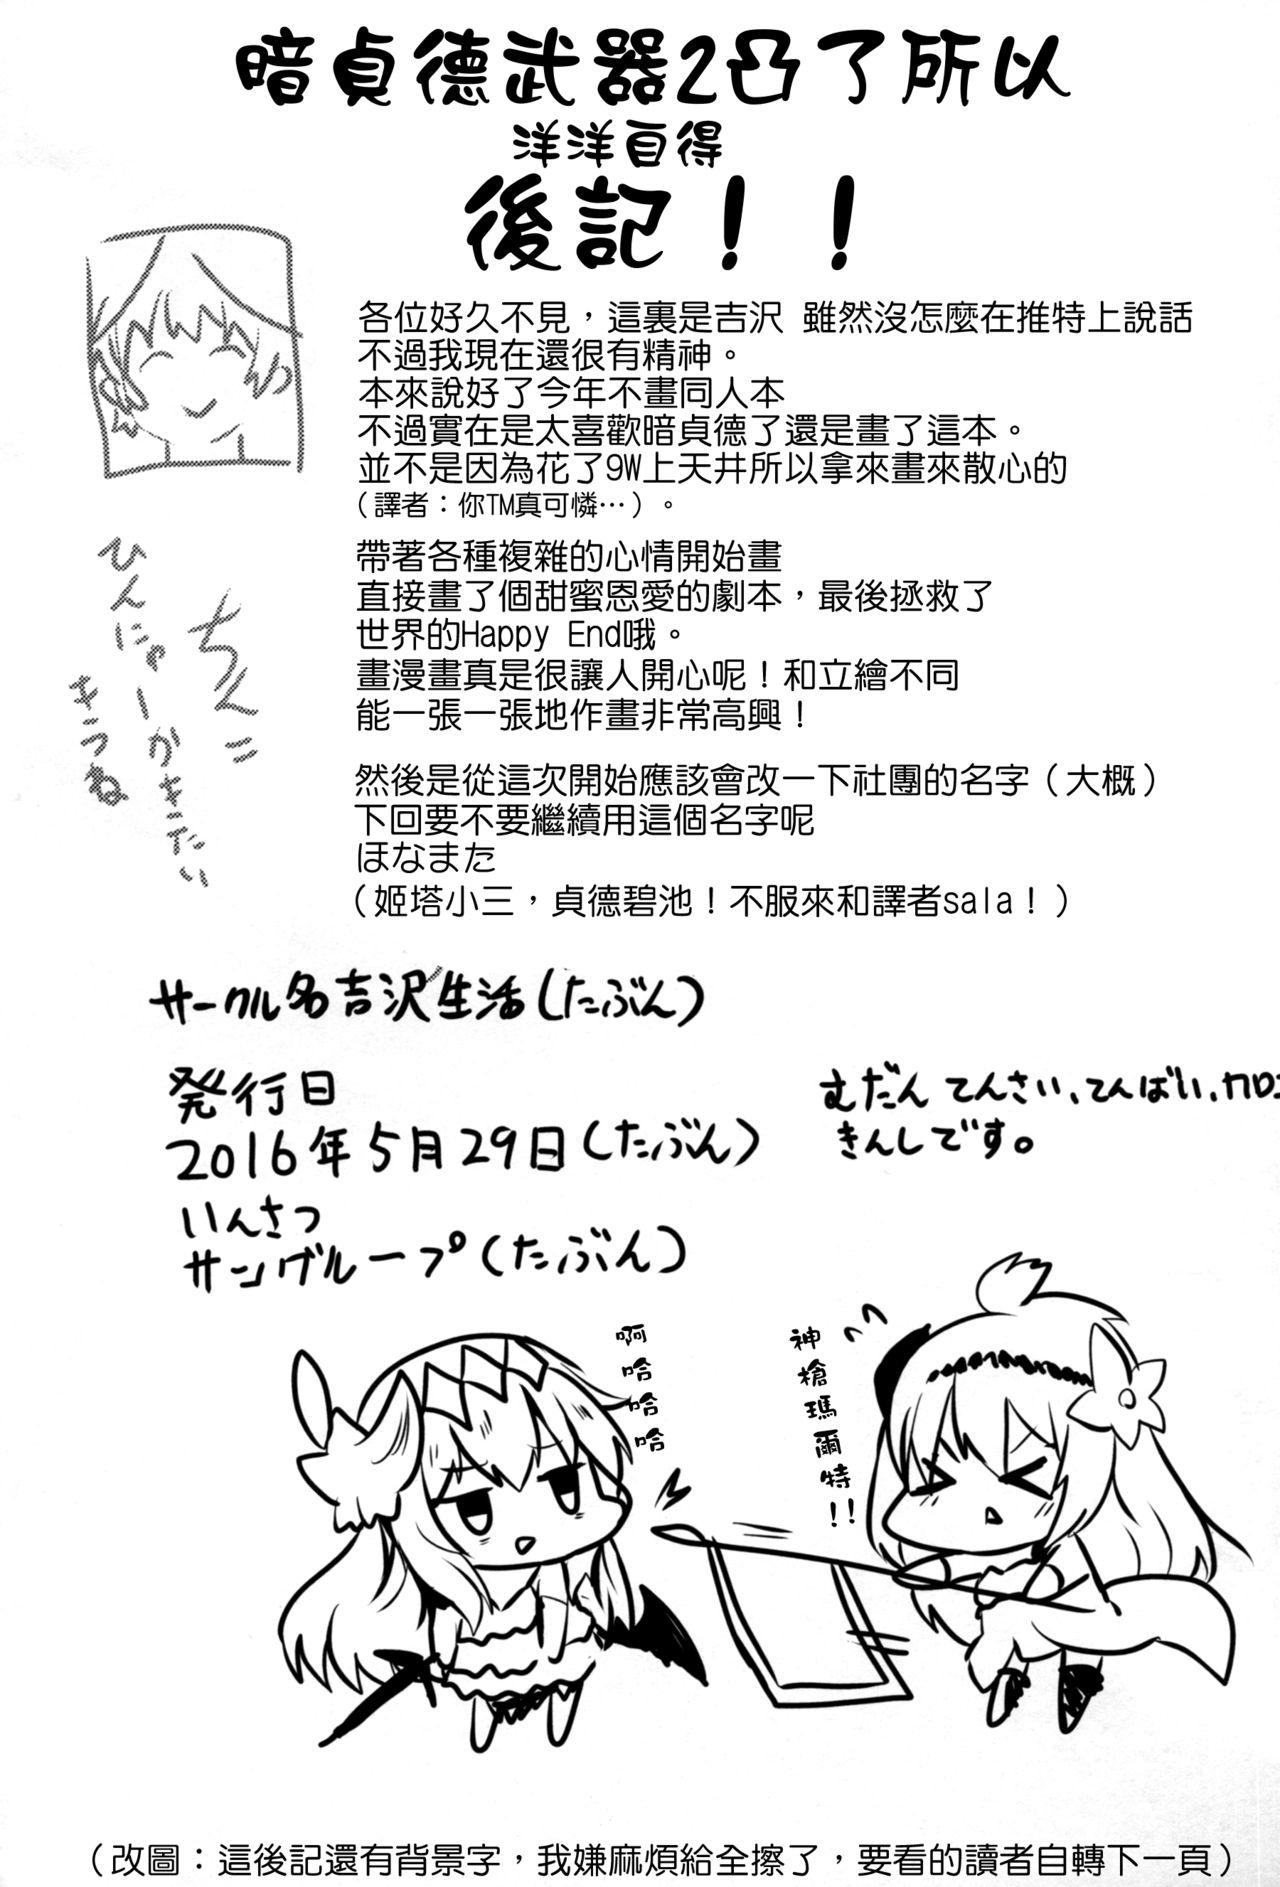 暗貞德武器2凸了所以
洋洋自得
後記！！
各位好久不見，這裏是吉沢 雖然沒怎麼在推特上說話
不過我現在還很有精神。
本來說好了今年不畫同人本
不過實在是太喜歡暗貞德了還是畫了這本。
並不是因為花了9W上天井所以拿來畫來散心的
（譯者：你TM真可憐…）。
帶著各種複雜的心情開始畫
直接畫了個甜蜜恩愛的劇本，最後拯救了
世界的Happy End哦。
畫漫畫真是很讓人開心呢！和立繪不同
能一張一張地作畫非常高興！
然後是從這次開始應該會改一下社團的名字（大概）
下回要不要繼續用這個名字呢
ほなまた
（姬塔小三，貞德碧池！不服來和譯者sala！）
ちんこ
ひんにゅーかきたい
きうね
サークル名吉沢生活(たぶん)
発行日
2016年5月29日(たぶん)
いんさつ
サングループ(たぶん)
むだん てんさい、てんばい、カロエ
きんしです。
啊哈哈哈
神槍瑪爾特!!
（改圖：這後記還有背景字，我嫌麻煩給全擦了，要看的讀者自轉下一頁）